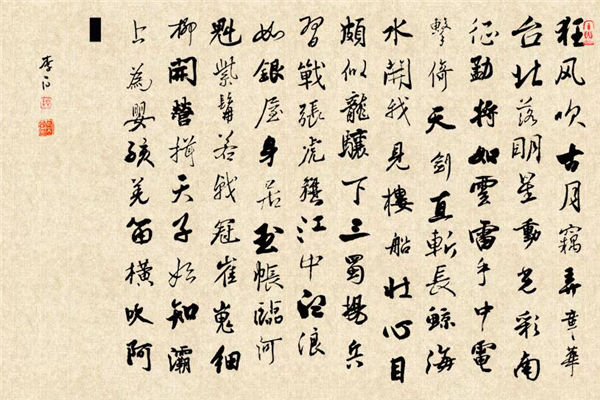 狂风吹古月竊弄章華
台北落明星動光彩南
征勐將如雲雷手中電
擊倚天劍直斬長鯨海
水開我見樓船壯心目
頗似龍驤下三蜀揚兵
習戰張虎旗江中白浪
如銀屋身居玉帳臨河
魁紫髯若戟冠崔嵬細
柳開營揖天子始知灞
上為嬰孩羌笛橫吹阿
李白